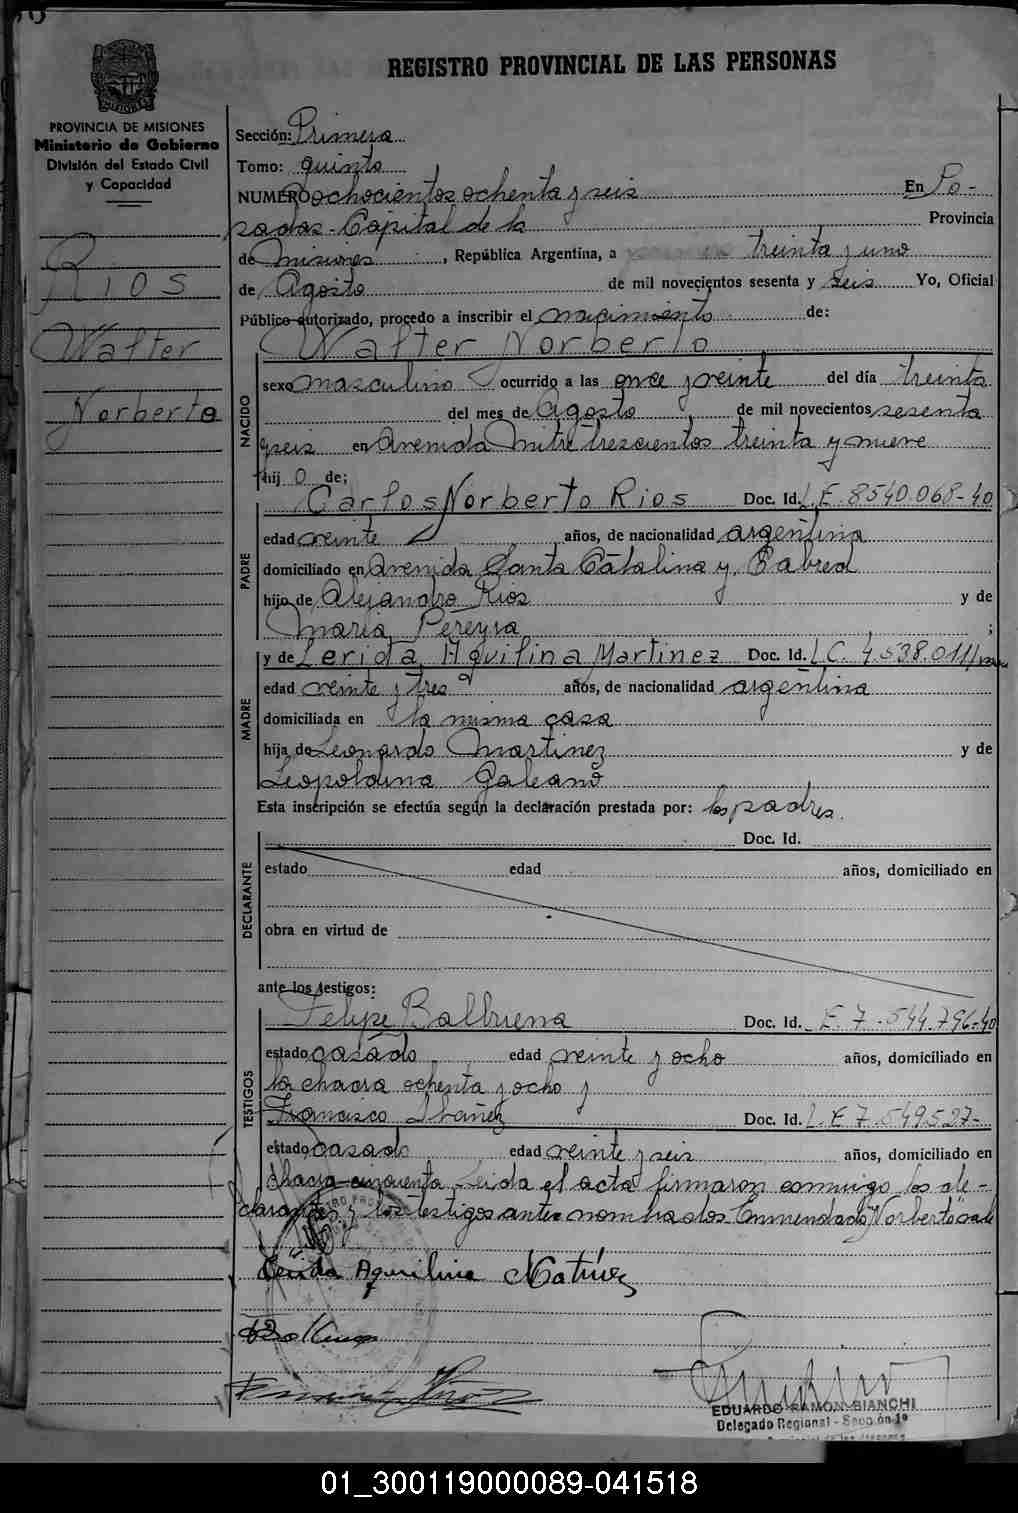 REGISTRO PROVINCIAL DE LAS PERSONAS
PROVINCIA DE MISIONES
Ministerio de Gobierno
División del Estado Civil
y Capacidad
Rios
Walter
Norberto
Sección: Primera
Tomo: quinto
NUMERO ochocientos ochenta y seis En Po-
sadas - Capital de la Provincia
de Misiones, República Argentina, a treinta y uno
de Agosto de mil novecientos sesenta y seis Yo, Oficial
Público autorizado, procedo a inscribir el nacimiento de:
Walter Norberto
NACIDO
sexo masculino ocurrido a las once y veinte del día treinta
del mes de Agosto de mil novecientos sesenta
y seis en Avenida Mitre trescientos treinta y nueve
hij o de:
PADRE
Carlos Norberto Rios Doc. Id. L.E. 8540.068-40
edad veinte años, de nacionalidad argentina
domiciliado en Avenida Santa Catalina y Cabred
hijo de Alejandro Rios y de
Maria Pereyra ;
MADRE
y de Lerida Aquilina Martinez Doc. Id. L.C. 4.538.011
edad veinte y tres años, de nacionalidad argentina
domiciliada en la misma casa
hija de Leonardo Martinez y de
Leopoldina Galeano
Esta inscripción se efectúa según la declaración prestada por: los padres.
DECLARANTE
Doc. Id.
estado edad años, domiciliado en
obra en virtud de
ante los testigos:
TESTIGOS
Felipe Balbuena Doc. Id. L.E. 7.544.796-40
estado casado edad veinte y ocho años, domiciliado en
la chacra ochenta y ocho y
Francisco Ibañez Doc. Id. L.E 7.549.527-
estado casado edad veinte y seis años, domiciliado en
chacra cincuenta Leida el acta firmaron conmigo los de-
clarantes y los testigos antes nombrados Enmendado "Norberto" vale
Lerida Aquilina Matinez
EDUARDO RAMON BIANCHI
Delegado Regional - Sección 1ª
01_300119000089-041518